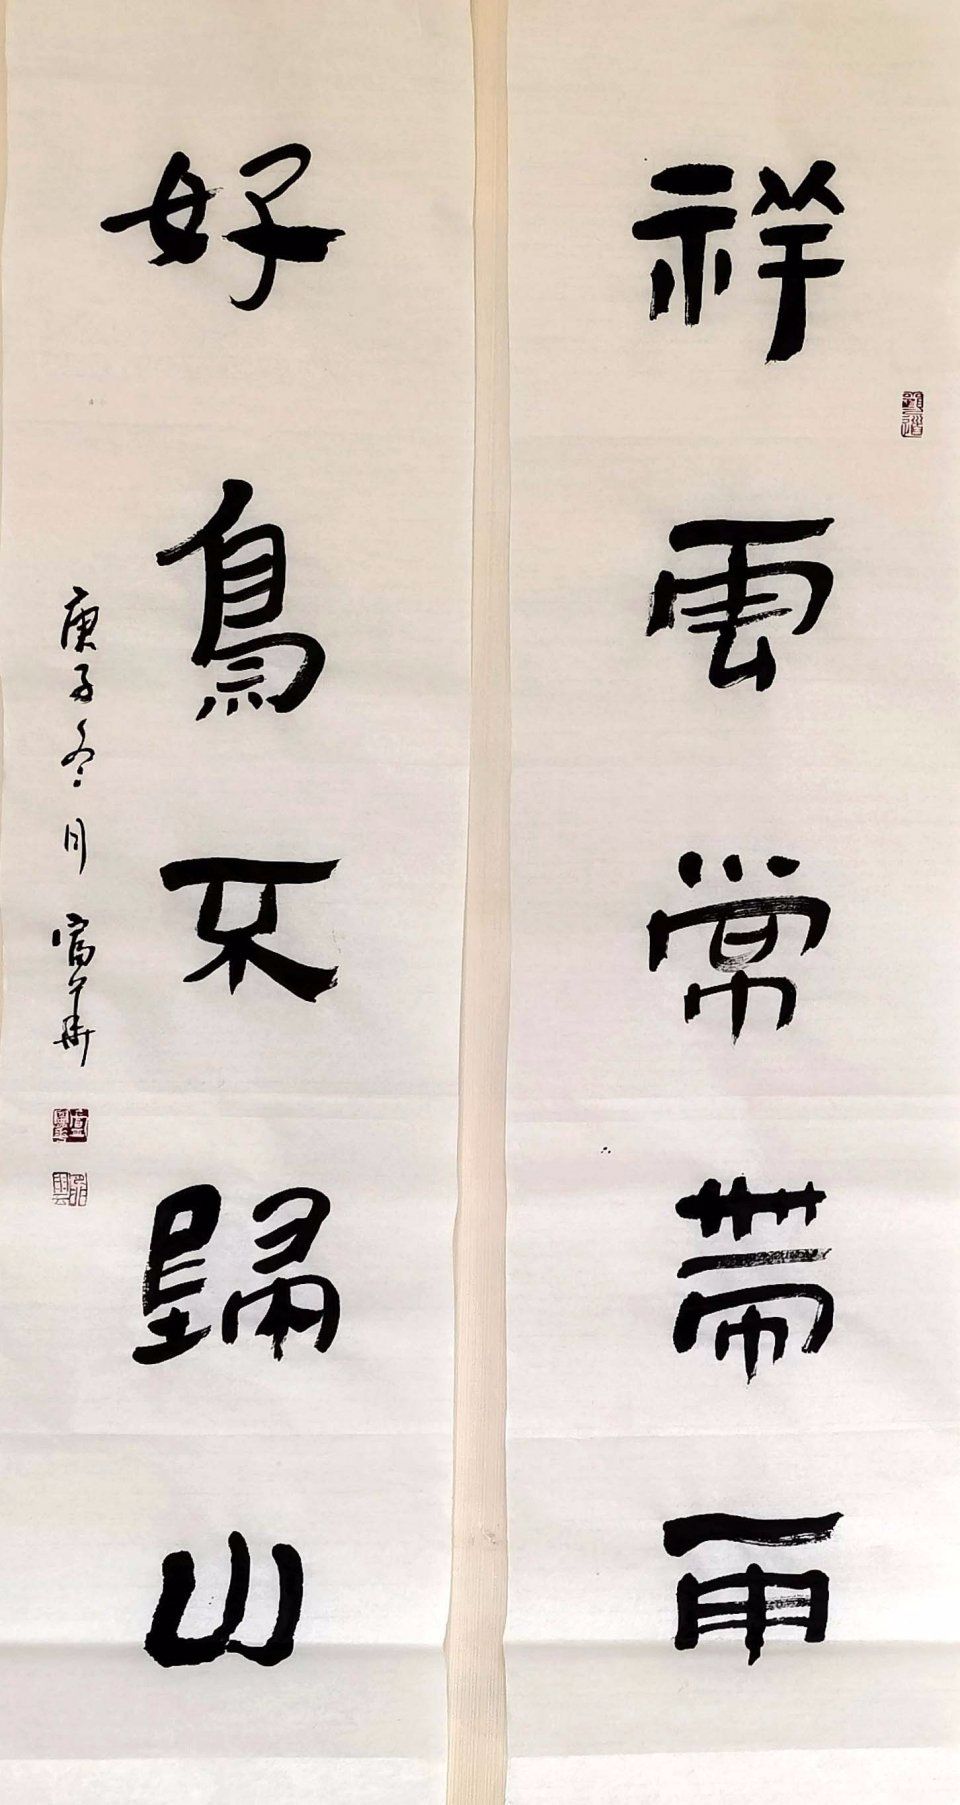 祥雲常帶雨
好鳥不歸山
庚子冬月 富華